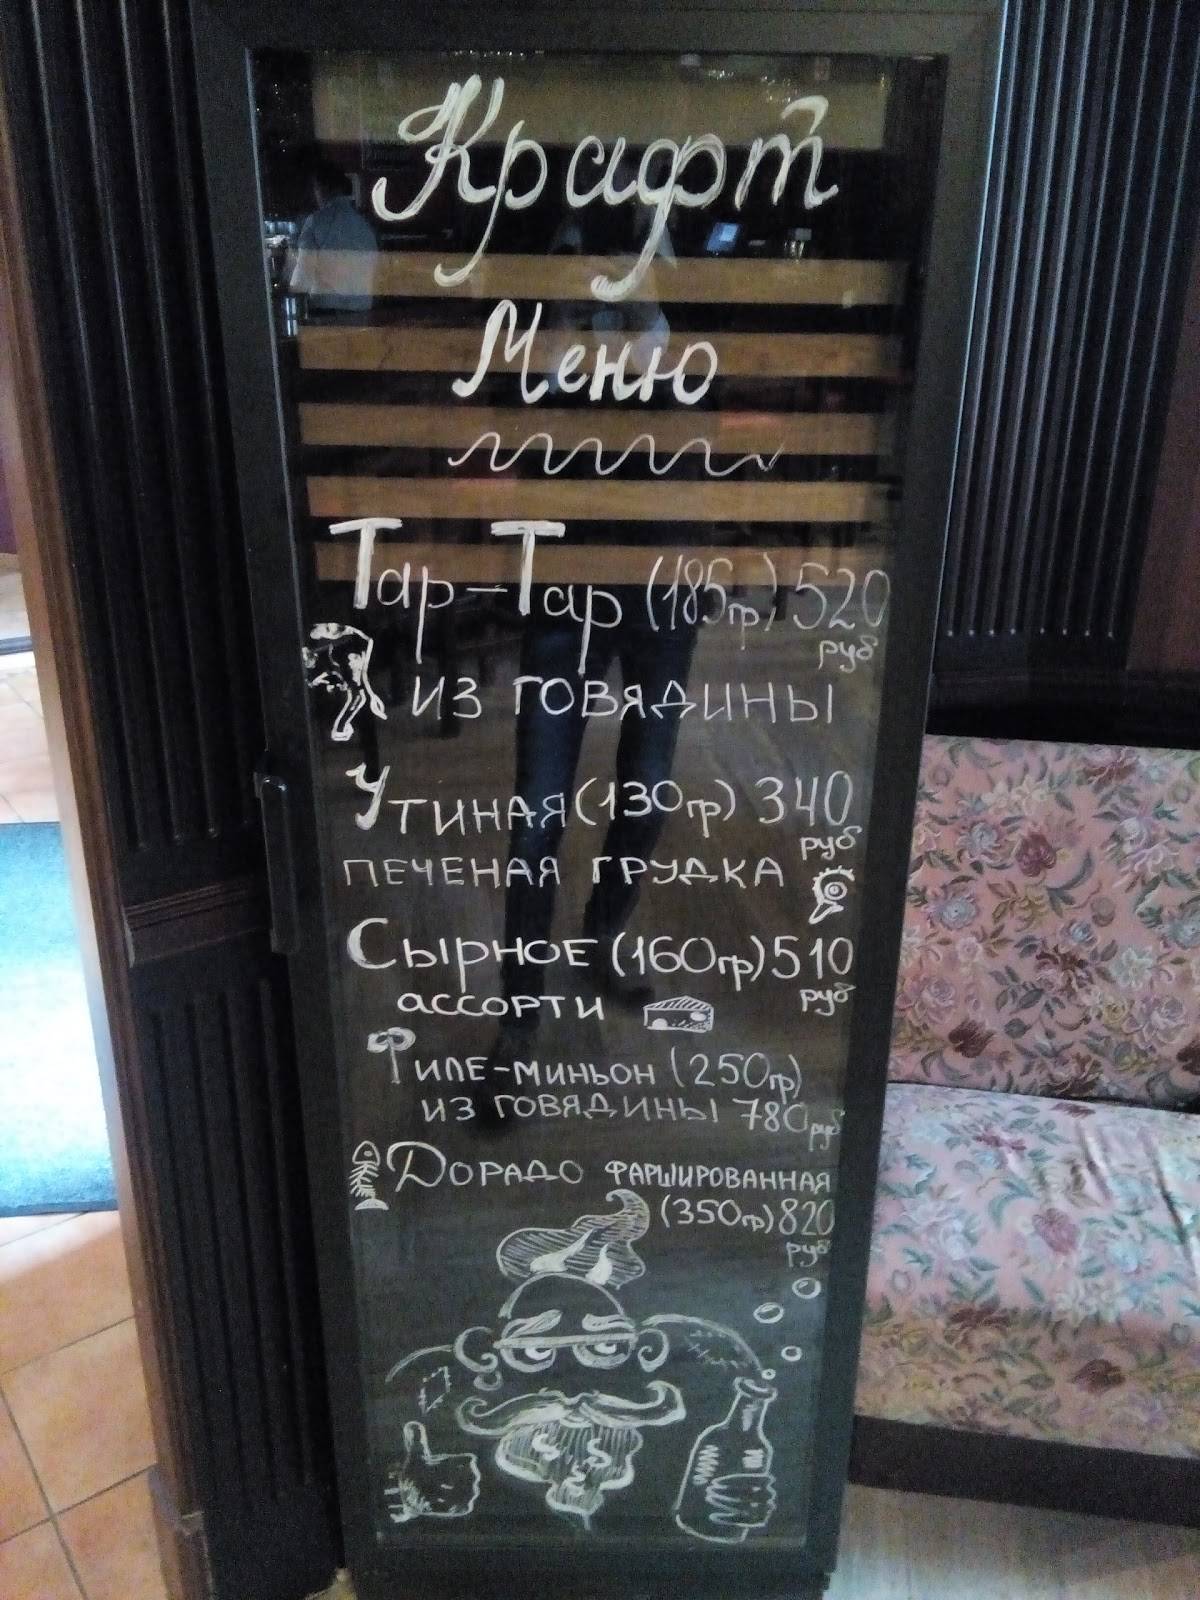 Крафт
Меню
Тар-Тар (185гр) 520
руб
из говядины
Утиная (130гр) 340
руб
печеная грудка
Сырное (160гр) 510
руб
ассорти
Филе-миньон (250гр)
из говядины 780 руб
Дорадо фаршированная
(350гр) 820
руб
S S
S